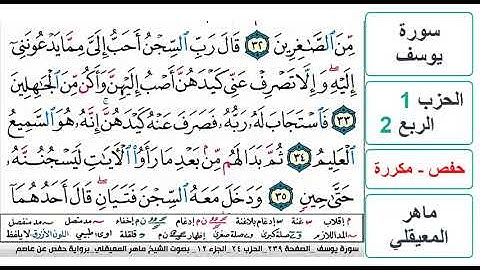 مِّنَ ٱلصَّٰغِرِينَ ٣٢ قَالَ رَبِّ ٱلسِّجْنُ أَحَبُّ إِلَىَّ مِمَّا يَدْعُونَنِىٓ
إِلَيْهِ ۖ وَإِلَّا تَصْرِفْ عَنِّى كَيْدَهُنَّ أَصْبُ إِلَيْهِنَّ وَأَكُن مِّنَ ٱلْجَٰهِلِينَ
٣٣ فَٱسْتَجَابَ لَهُۥ رَبُّهُۥ فَصَرَفَ عَنْهُ كَيْدَهُنَّ ۚ إِنَّهُۥ هُوَ ٱلسَّمِيعُ
ٱلْعَلِيمُ ٣٤ ثُمَّ بَدَا لَهُم مِّنۢ بَعْدِ مَا رَأَوُا۟ ٱلْءَايَٰتِ لَيَسْجُنُنَّهُۥ
حَتَّىٰ حِينٍ ٣٥ وَدَخَلَ مَعَهُ ٱلسِّجْنَ فَتَيَانِ ۖ قَالَ أَحَدُهُمَآ
سورة يوسف _ الصفحة ٢٣٩ _ الحزب ٢٤ _ الجزء ١٢ _ بصوت الشيخ ماهر المعيقلي _ برواية حفص عن عاصم
سورة
يوسف
الحزب 1
الربع 2
حفص - مكررة
ماهر
المعيقلي